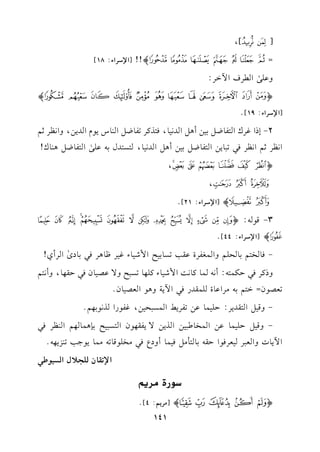 [ لِمَن نُّرِيدُ]،
= ثُمَّ جَعَلْنَا لَهُ جَهَنَّمَ يَصْلَىٰهَا مَذْمُومًا مَّدْحُورًا﴾!! [الإسراء: ١٨]
وعلىٰ الطرف الآخر:
﴿وَمَنْ أَرَادَ ٱلْأَخِرَةَ وَسَعَىٰ لَهَا سَعْيَهَا وَهُوَ مُؤْمِنٌ فَأُو۟لَٰٓئِكَ كَانَ سَعْيُهُم مَّشْكُورًا﴾
[الإسراء: ١٩].
٢- إذا غرك التفاضل بين أهل الدنيا، فتذكر تفاضل الناس يوم الدين، وانظر ثم
انظر ثم انظر في تباين التفاضل بين أهل الدنيا، لتستدل به علىٰ التفاضل هناك!
﴿ٱنظُرْ كَيْفَ فَضَّلْنَا بَعْضَهُمْ عَلَىٰ بَعْضٍ،
وَلَلْأَخِرَةُ أَكْبَرُ دَرَجَٰتٍ،
وَأَكْبَرُ تَفْضِيلًا﴾ [الإسراء: ٢١].
٣- قوله: ﴿وَإِن مِّن شَىْءٍ إِلَّا يُسَبِّحُ بِحَمْدِهِۦ وَلَٰكِن لَّا تَفْقَهُونَ تَسْبِيحَهُمْ إِنَّهُۥ كَانَ حَلِيمًا
غَفُورًا﴾ [الإسراء: ٤٤].
- فالختم بالحلم والمغفرة عقب تسابيح الأشياء غير ظاهر في بادئ الرأي!
وذكر في حكمته: أنه لما كانت الأشياء كلها تسبح ولا عصيان في حقها، وأنتم
تعصون= ختم به مراعاة للمقدر في الآية وهو العصيان.
- وقيل التقدير: حليما عن تفريط المسبحين، غفورا لذنوبهم.
- وقيل حليما عن المخاطبين الذين لا يفقهون التسبيح بإهمالهم النظر في
الآيات والعبر ليعرفوا حقه بالتأمل فيما أودع في مخلوقاته مما يوجب تنزيهه.
الإتقان للجلال السيوطي
سورة مريم
﴿وَلَمْ أَكُنۢ بِدُعَآئِكَ رَبِّ شَقِيًّا﴾ [مريم: ٤].
١٤١